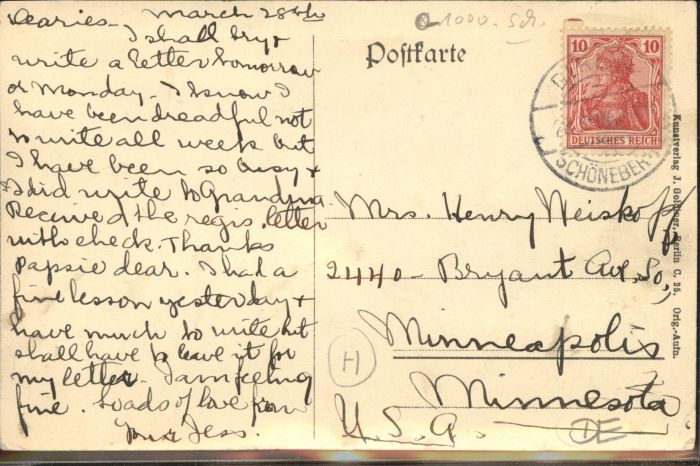 Dearies - March 28th
I shall try &
write a letter tomorrow
or Monday. I know I
have been dreadful not
to write all week but
I have been so busy &
I did write to Grandma
Received the regis. letter
with check. Thanks
Papsie dear. I had a
fine lesson yesterday &
have much to write but
shall have to leave it for
my letter. I am feeling
fine. Loads of love from
Your Jess.
1000. Sch.
Postkarte
10 10
DEUTSCHES REICH
SCHÖNEBERG
Mrs. Henry Neiskopf
2440 - Bryant Ave. So,
Minneapolis
Minnesota
U.S.A.
H
DE
Kunstverlag J. Goldiner, Berlin C. 25. Orig.-Aufn.